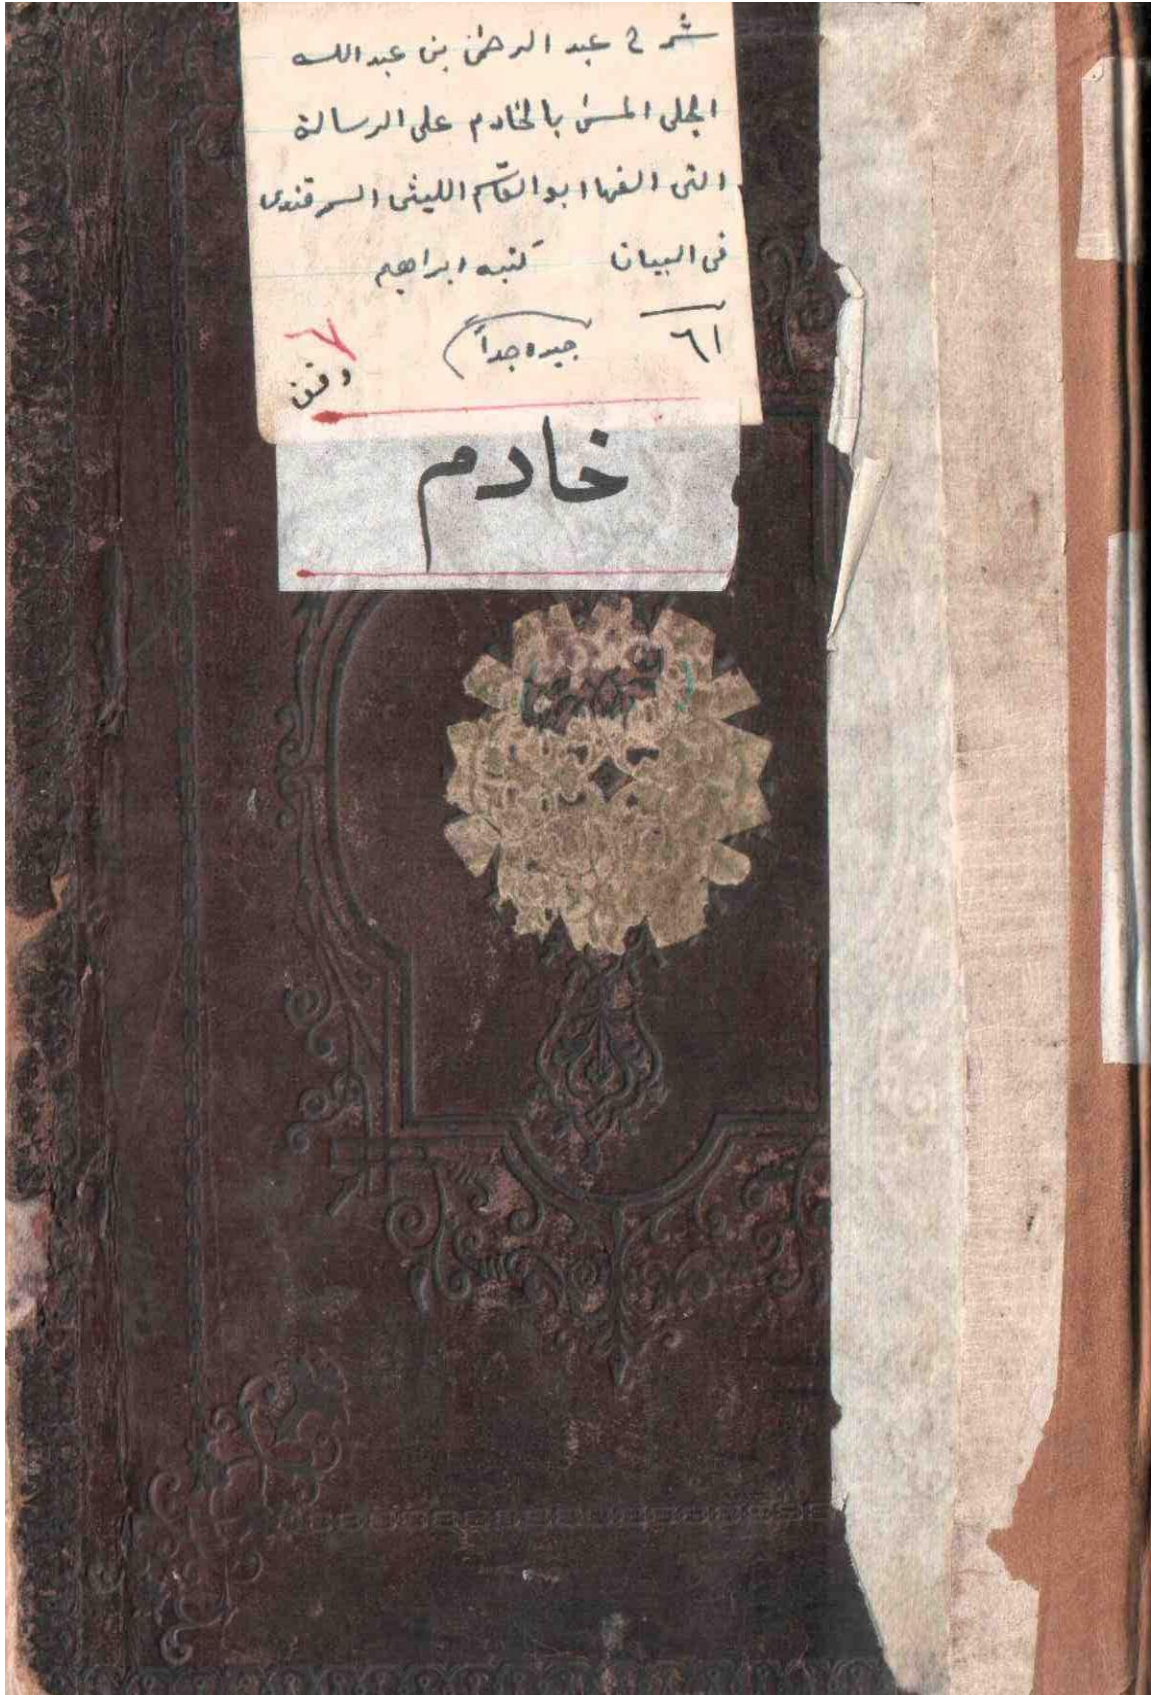 شرح عبد الرحمن بن عبد الله
الجلي المسمى بالخادم على الرسالة
التى الفها ابو القاسم الليثى السمرقندى
فى البيان كتبه ابراهيم
٦١ جيده جداً ٦
وقف
خادم